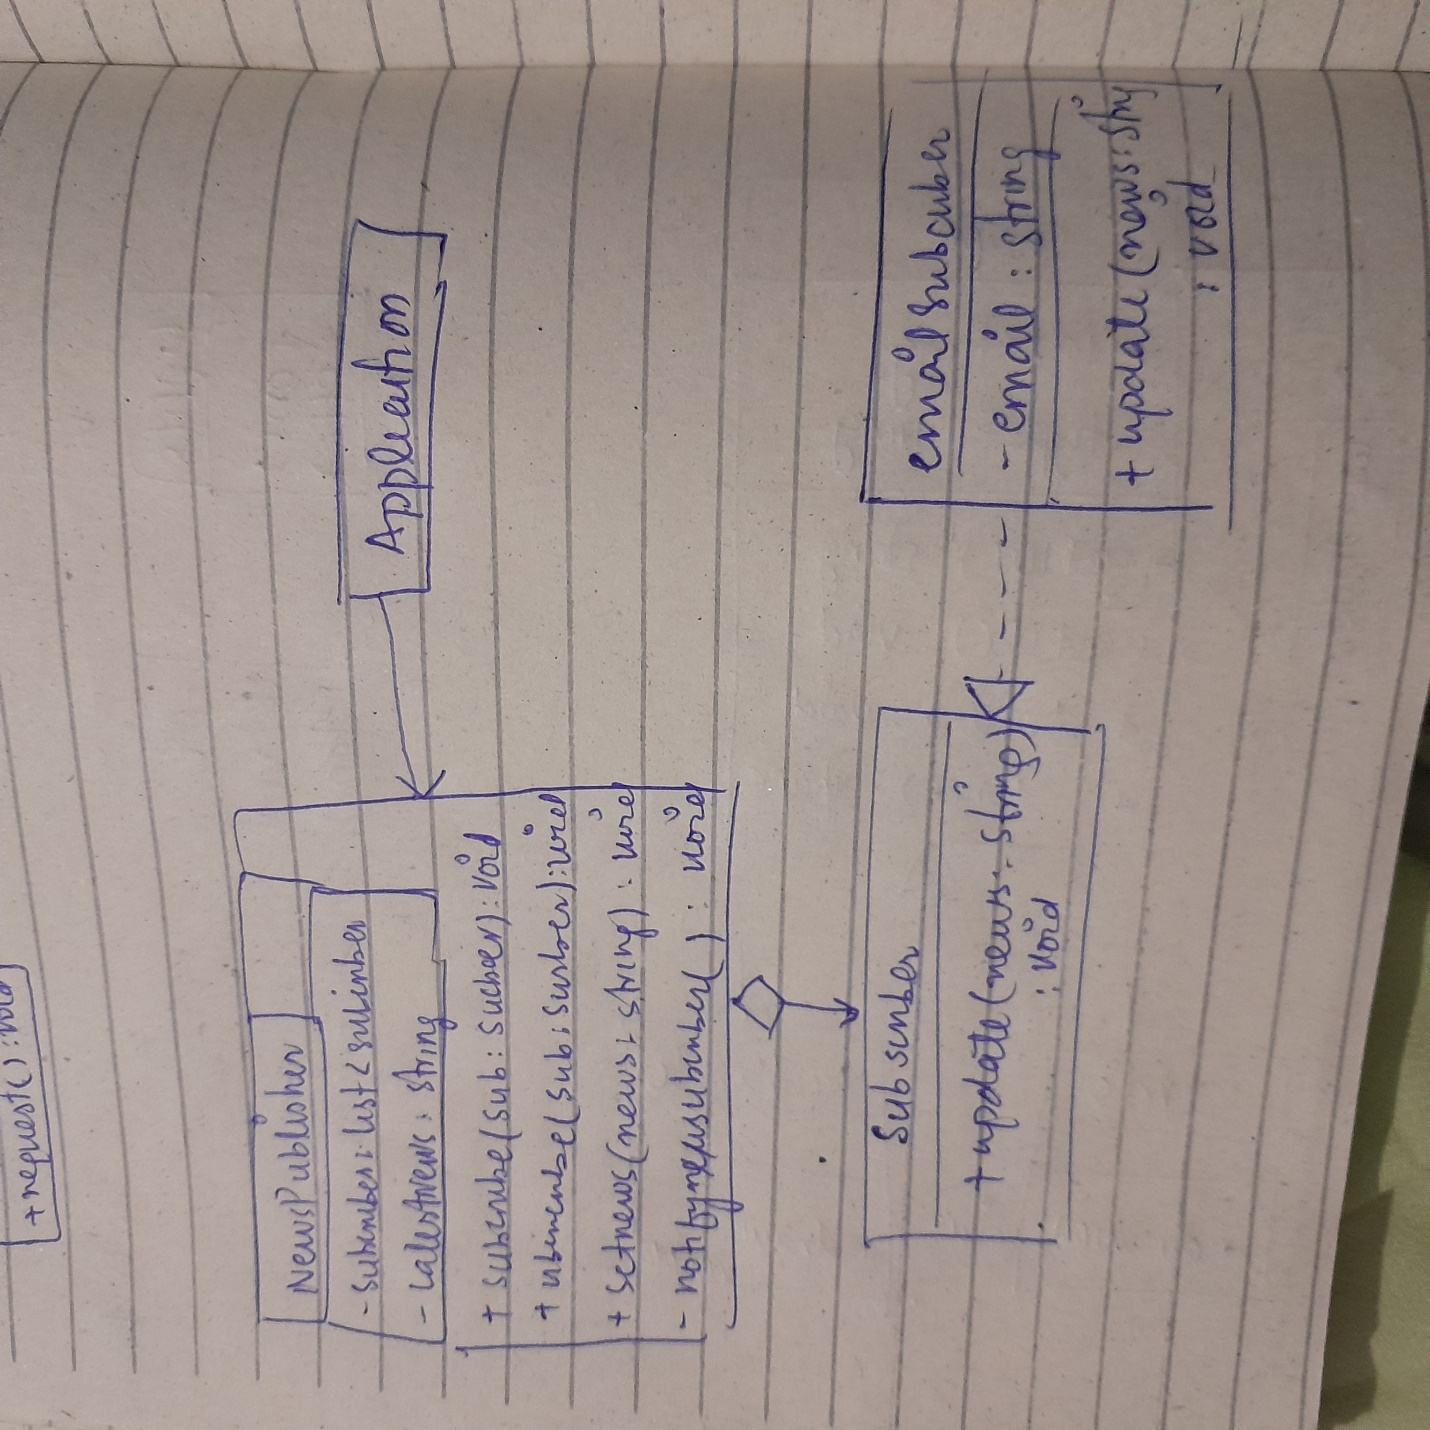 + request() : void
Application
NewsPublisher
- Subscriber : list < subscriber
- latestnews : string
+ subscribe(sub : subcer) : void
+ unsubscribe(sub : suscber) : void
+ setnews(news : string) : void
- notifyme/subscriber() : void
Subscriber
+ update(news : string)
: void
emailsubcriber
- email : string
+ update(news : string
: void